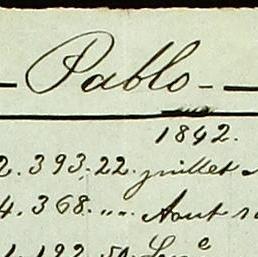 Pablo
1842.
2.393.22. juillet
4.368. „„. Aout